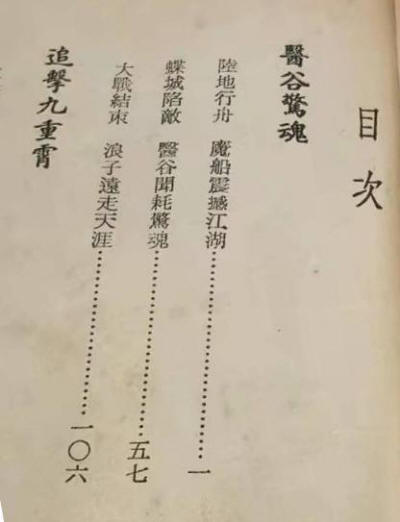 目次
醫谷驚魂
陸地行舟　魔船震撼江湖…………一
蝶城陷敵　醫谷聞耗驚魂…………五七
大戰結束　浪子遠走天涯…………一〇六
追擊九重霄